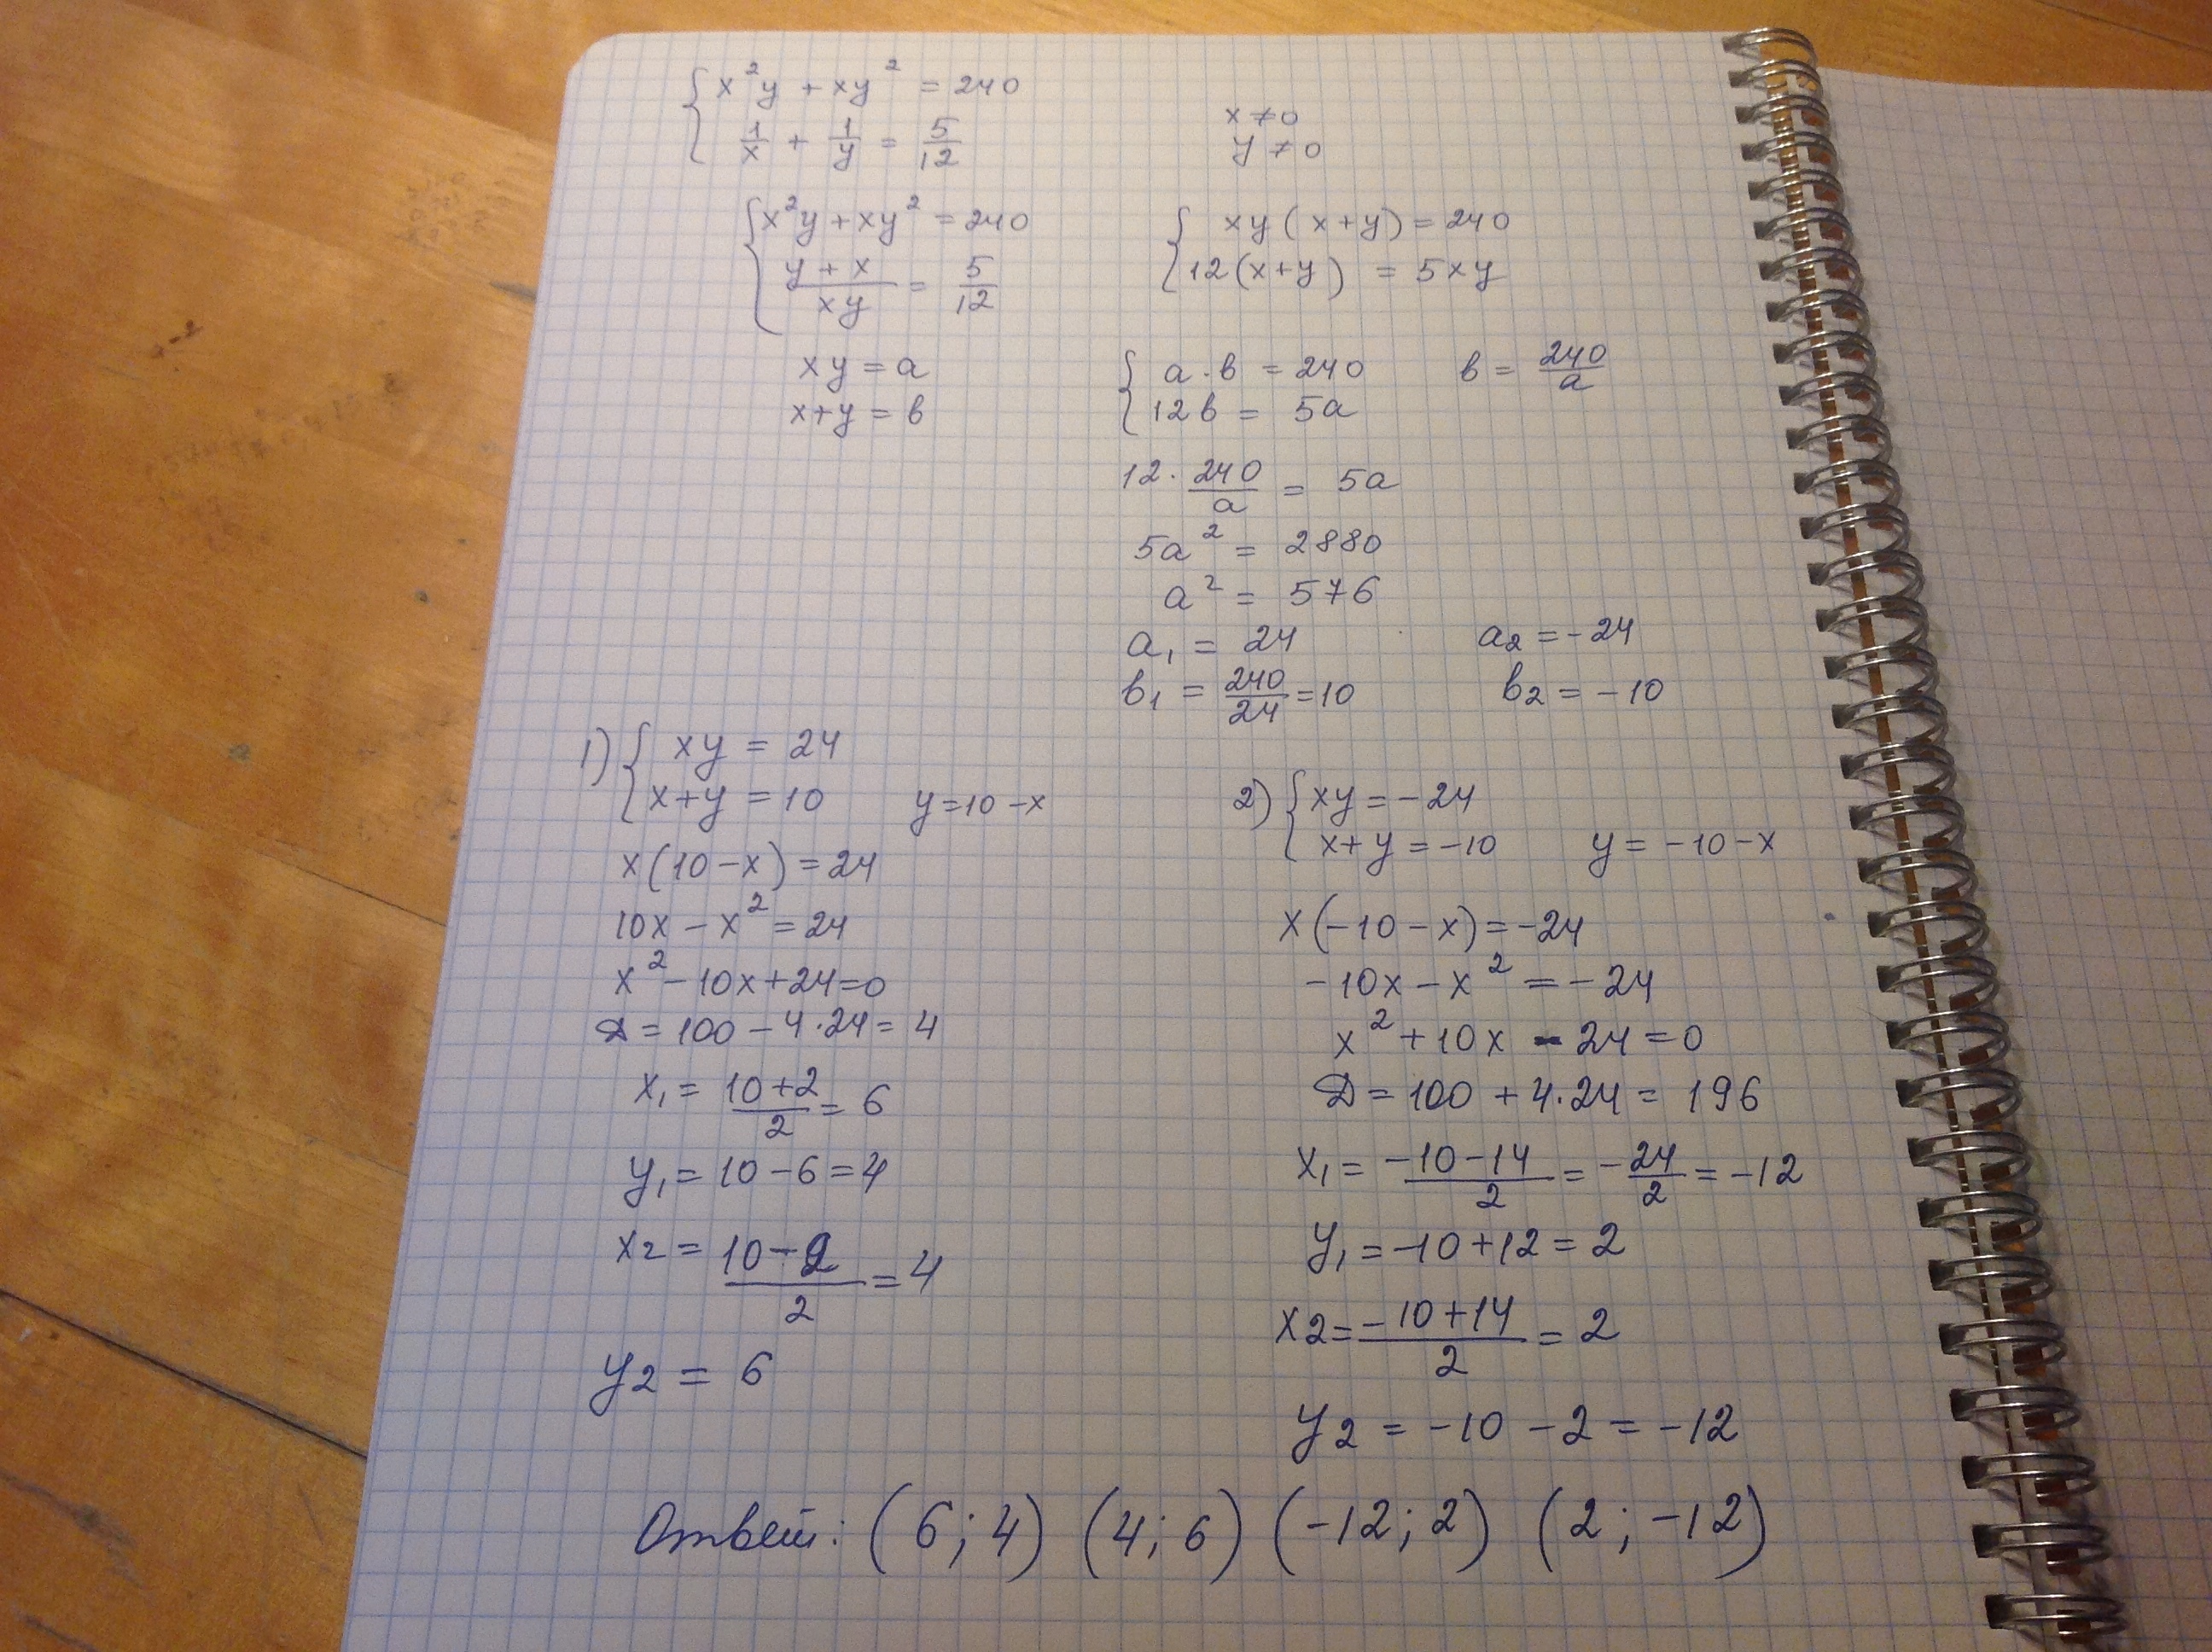 { x²y + xy² = 240
1/x + 1/y = 5/12
x ≠ 0
y ≠ 0
{ x²y + xy² = 240
(y + x)/(xy) = 5/12
{ xy(x+y) = 240
12(x+y) = 5xy
xy = a
x+y = b
{ a·b = 240
12b = 5a
b = 240/a
12· 240/a = 5a
5a² = 2880
a² = 576
a₁ = 24
a₂ = -24
b₁ = 240/24 = 10
b₂ = -10
1) { xy = 24
x+y = 10
y = 10 - x
x(10 - x) = 24
10x - x² = 24
x² - 10x + 24 = 0
D = 100 - 4·24 = 4
x₁ = (10+2)/2 = 6
y₁ = 10 - 6 = 4
x₂ = (10-2)/2 = 4
y₂ = 6
2) { xy = -24
x+y = -10
y = -10 - x
x(-10 - x) = -24
-10x - x² = -24
x² + 10x - 24 = 0
D = 100 + 4·24 = 196
x₁ = (-10-14)/2 = -24/2 = -12
y₁ = -10+12 = 2
x₂ = (-10+14)/2 = 2
y₂ = -10 - 2 = -12
Ответ: (6; 4) (4; 6) (-12; 2) (2; -12)